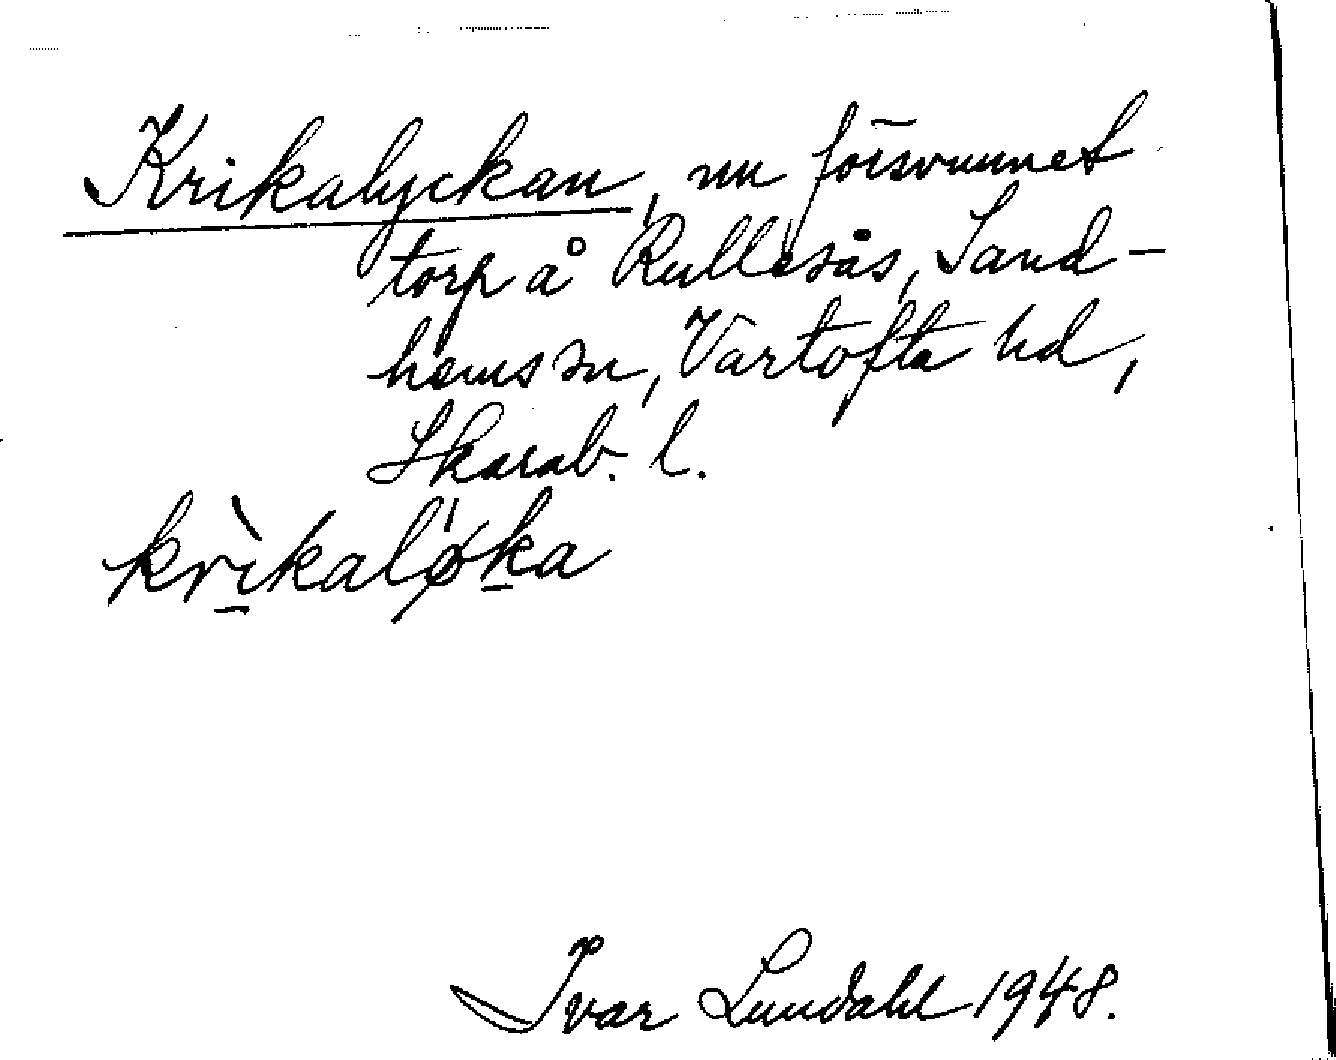 Krikalyckan, nu försvunnet
torp å Rullesås, Sand-
hems sn, Vartofta hd,
Skarab. l.
krìkalø̀ka
Ivar Lundahl 1948.